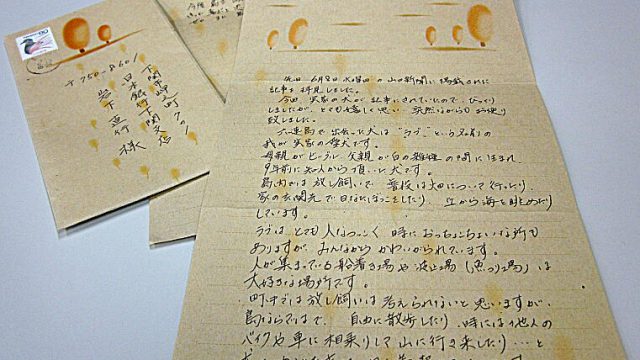 〒750-8601
下関市岬之町7の1
日本銀行下関支店
岩下直行様
先日 6月8日水曜日の山口新聞に掲載された
記事を拝見しました。
今回、実家の犬が記事にされていたので、びっくり
しましたが、とても嬉しく思い、突然ながらもお便り
致しました。
六連島で出会った犬は“ラブ”という名前の
我が実家の愛犬です。
母親がビーグル、父親が白の雑種の間に生まれ
9年前に知人から頂いた犬です。
島内では放し飼いで、普段は畑について行ったり、
家の玄関先で日なたぼっこをしたり、丘から海を眺めたり
しています。
ラブはとても人なつっこく、時におっちょこちょいな所も
ありますが、みんなからかわいがられています。
人が集まっている船着き場や波止場(魚つり場)は
大好きな場所です。
町中では放し飼いは考えられないと思いますが、
島ならではで、自由に散歩したり、時には他人の
バイクや車に相乗りして山に行き来したり…と